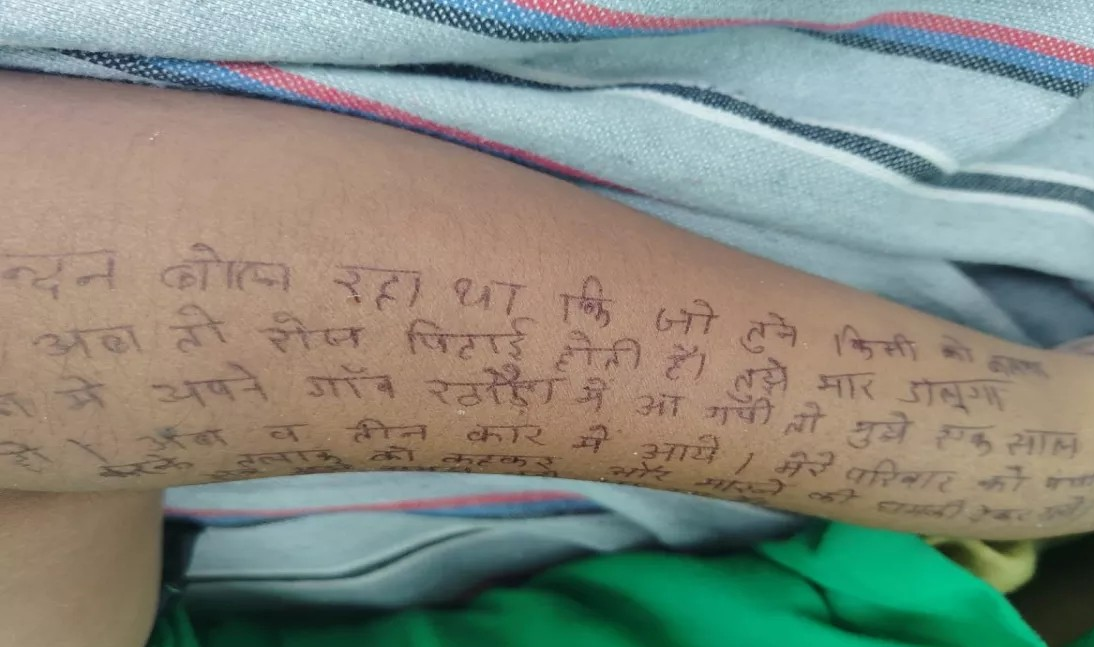 न्दन बोल रहा था कि जो तुमे किसी को
अब तो रोज पिटाई होती है। तुझे मार डालूगा
में अपने गाँव रठौड़ा में आ गयी तो मुझे एक साल
है। अब व तीन कार में आये। मेरे परिवार को
को कहकर और मारने की धमकी देकर गये।